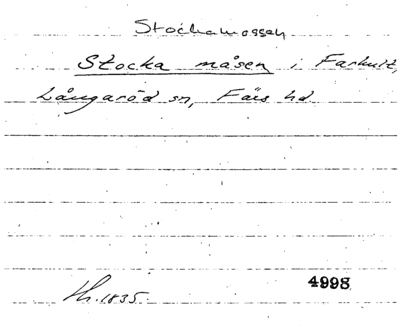 Stockamossen
Stocka måsen i Farhult,
Långaröd sn, Färs hd
1835.
4998